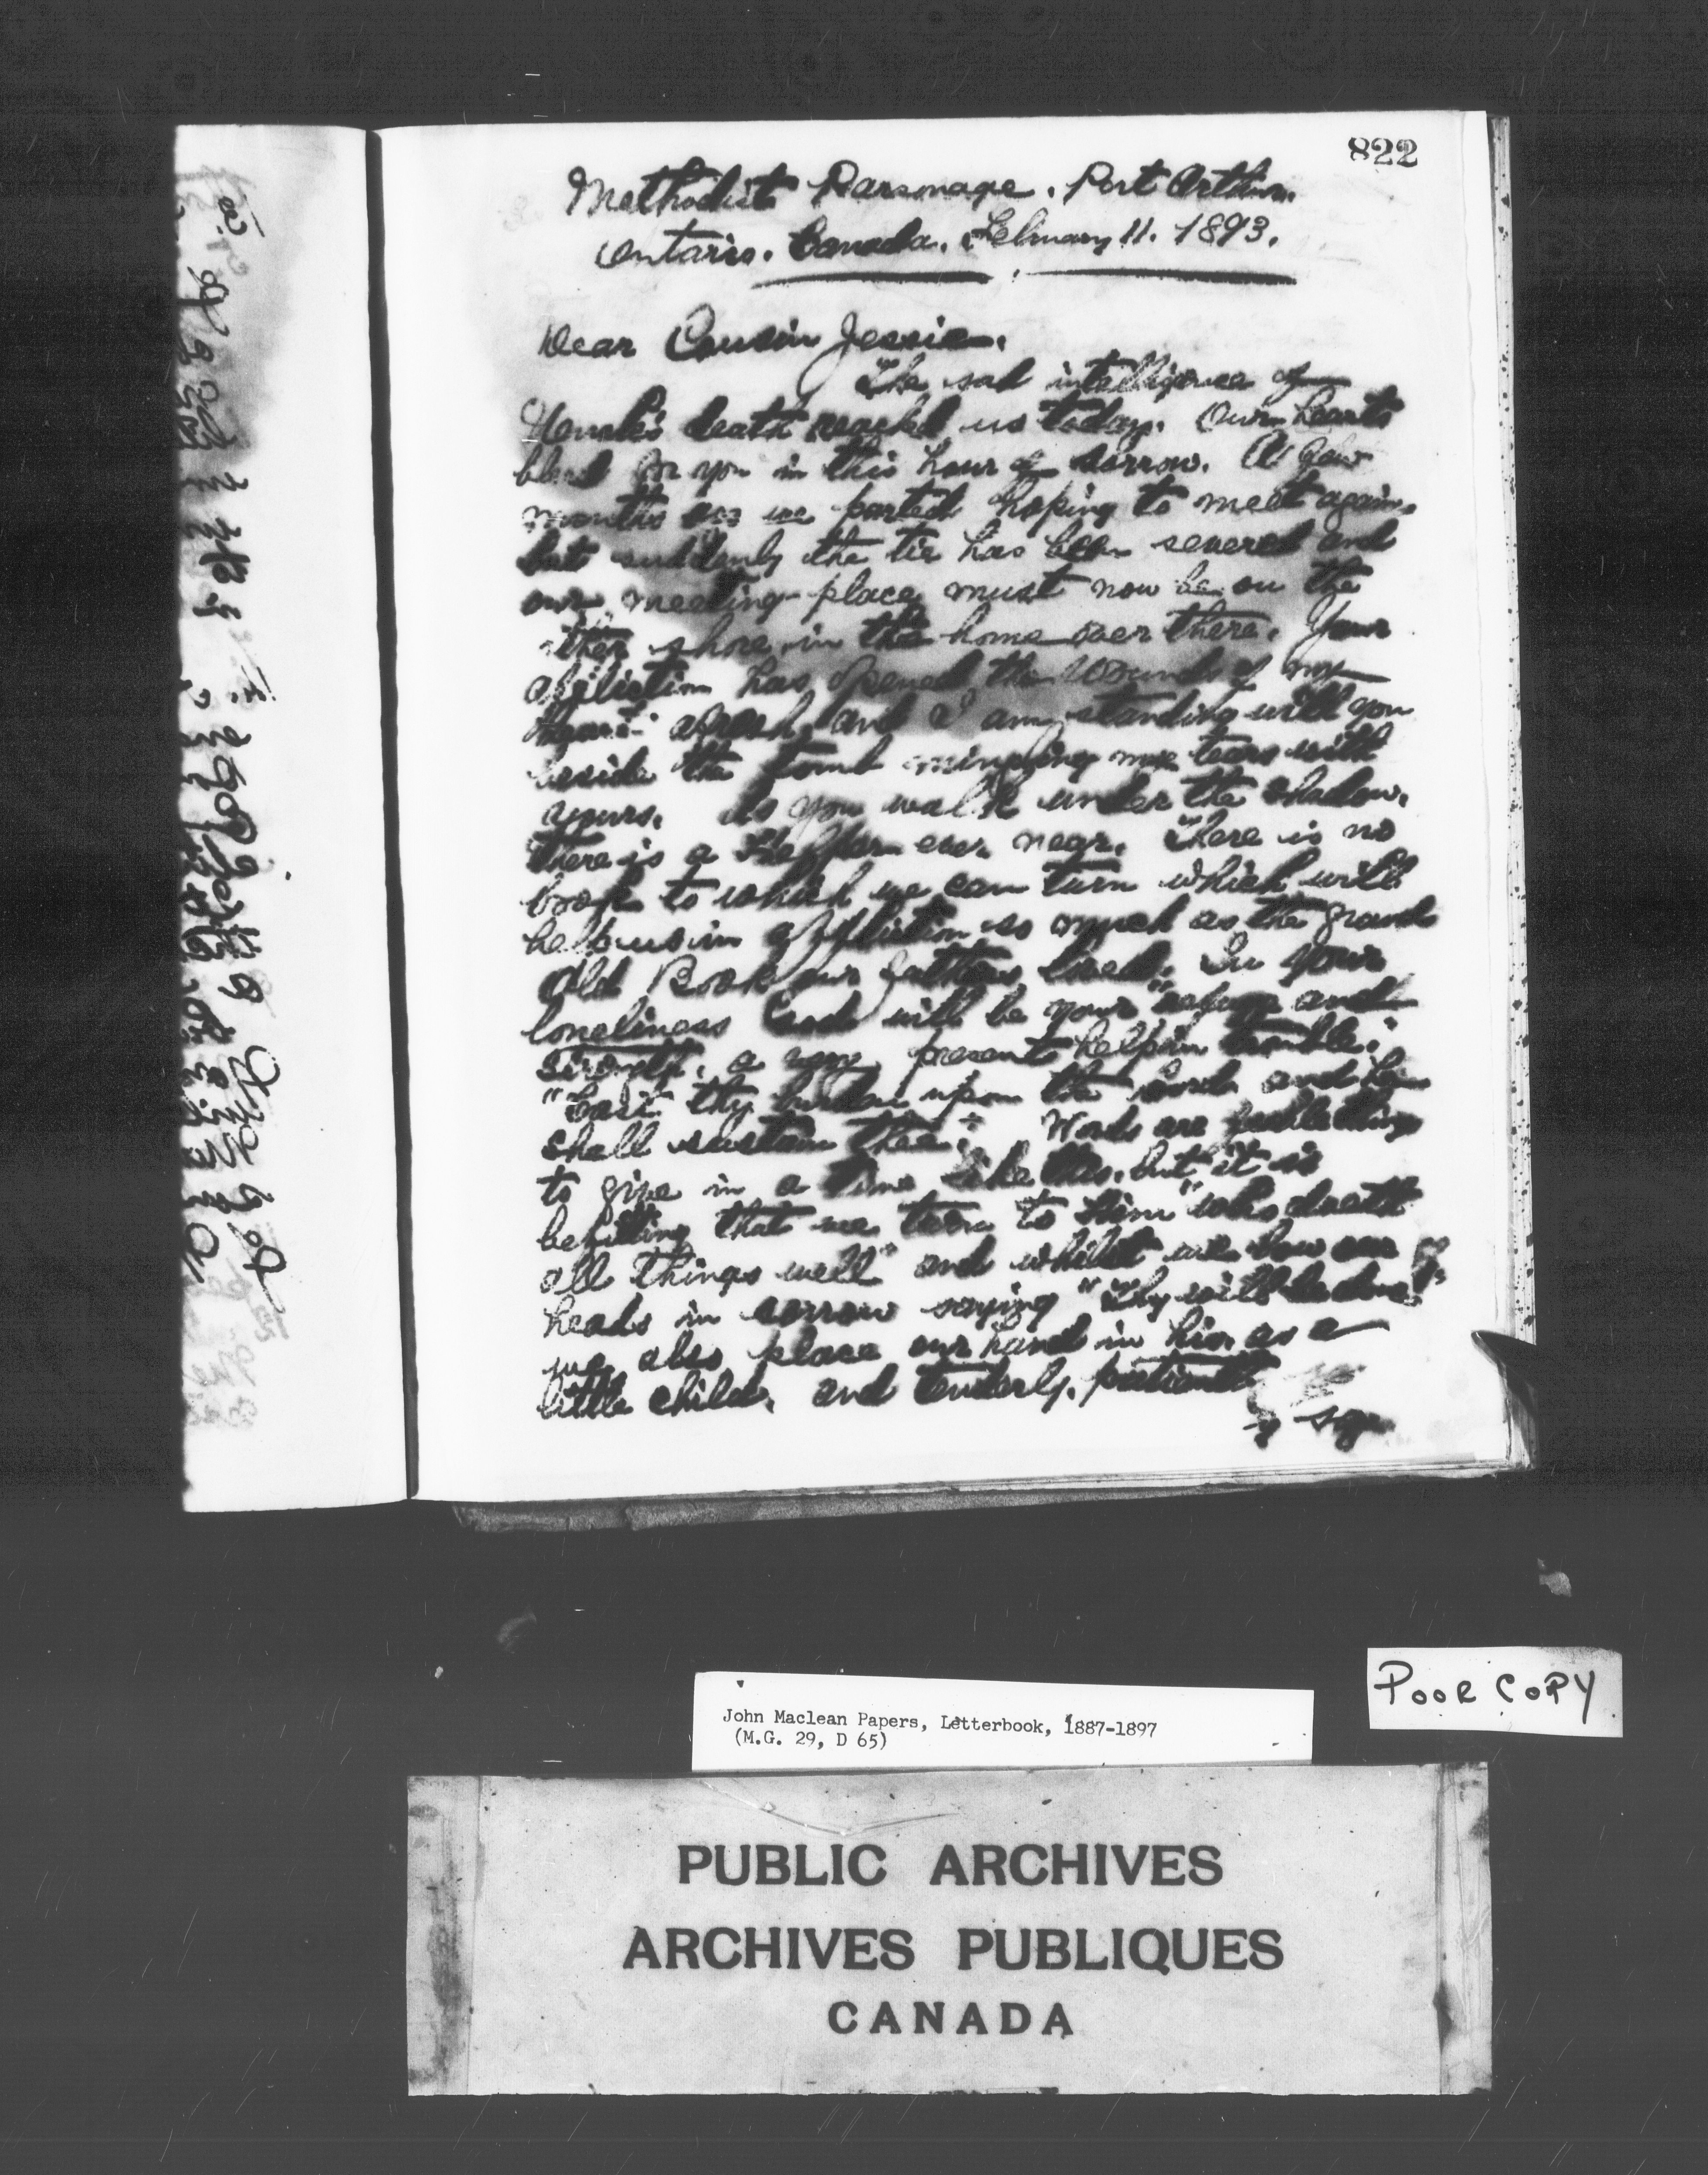 822
Methodist Parsonage. Port Arthur.
Ontario. Canada. February 11. 1893.
Dear Cousin Jessie.
The sad intelligence of
death reached us today. Our hearts
bleed for you in this hour of sorrow. A few
months ago we parted hoping to meet again,
but suddenly the tie has been severed and
our meeting-place must now be on the
other shore, in the home over there. Your
affliction has opened the wounds of my
heart afresh, and I am standing with you
beside the tomb mingling my tears with
yours. As you walk under the shadow,
there is a Helper ever near. There is no
book to which we can turn which will
help us in affliction so much as the grand
Old Book our fathers loved. In your
loneliness God will be your "refuge and
strength, a very present help in trouble."
"Cast thy burden upon the Lord and he
shall sustain thee." Words are feeble things
to give in a time like this, but it is
befitting that we turn to Him "who doeth
all things well" and whilst we bow our
heads in sorrow saying "Thy will be done",
we also place our hand in his, as a
little child, and tenderly, patient
ly say
POOR COPY
John Maclean Papers, Letterbook, 1887-1897
(M.G. 29, D 65)
PUBLIC ARCHIVES
ARCHIVES PUBLIQUES
CANADA